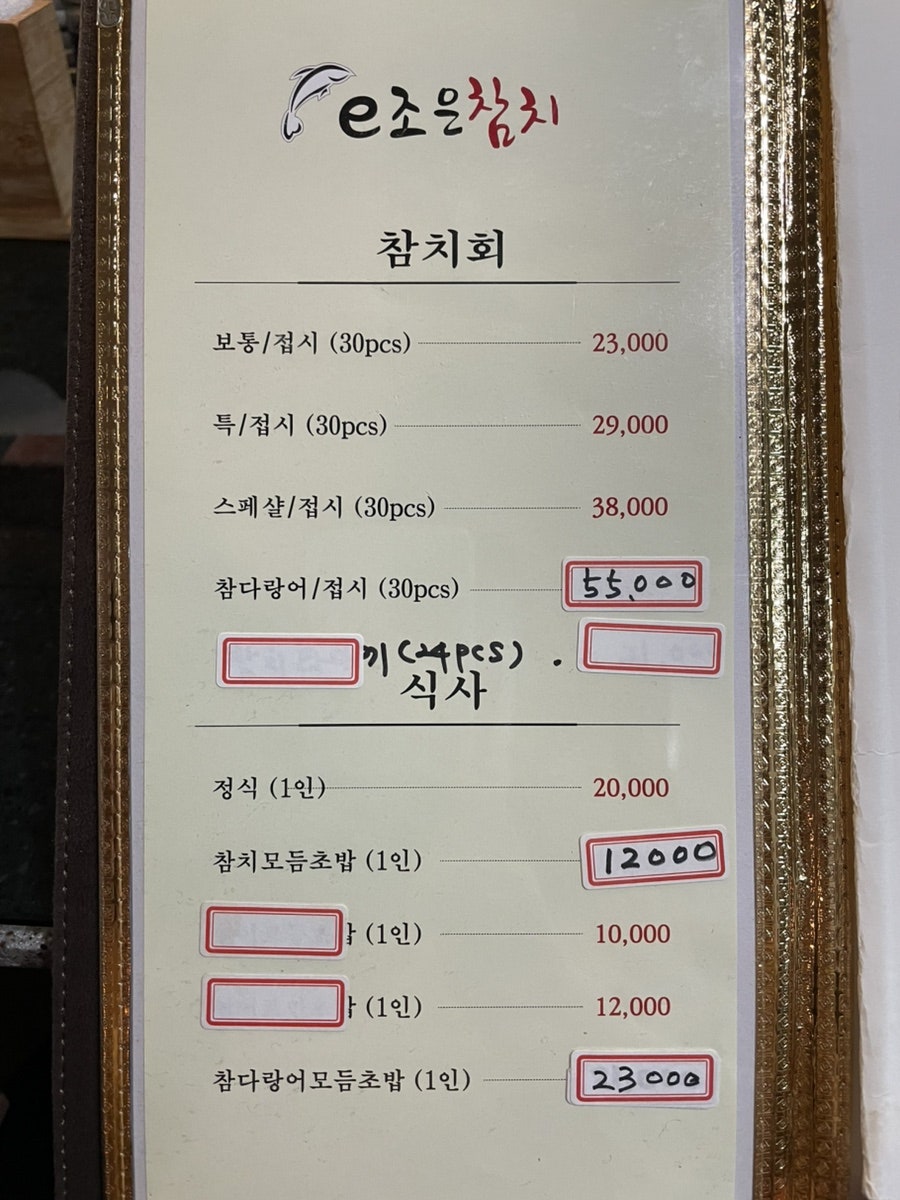 e조은참치
참치회
보통/접시 (30pcs) 23,000
특/접시 (30pcs) 29,000
스페샬/접시 (30pcs) 38,000
참다랑어/접시 (30pcs) 55,000
끼 (24pcs) .
식사
정식 (1인) 20,000
참치모듬초밥 (1인) 12000
(1인) 10,000
(1인) 12,000
참다랑어모듬초밥 (1인) 23000